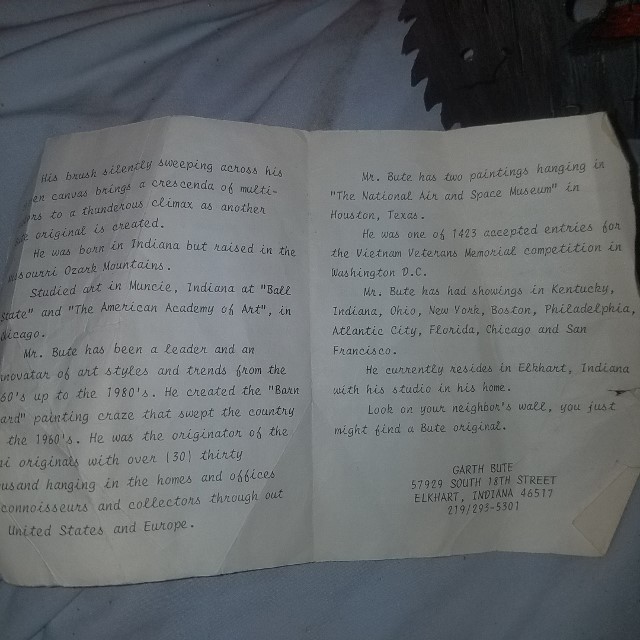 His brush silently sweeping across his
canvas brings a crescenda of multi-
to a thunderous climax as another
original is created.
He was born in Indiana but raised in the
Ozark Mountains.
Studied art in Muncie, Indiana at "Ball
State" and "The American Academy of Art", in
Chicago.
Mr. Bute has been a leader and an
novator of art styles and trends from the
60's up to the 1980's. He created the "Barn
ard" painting craze that swept the country
the 1960's. He was the originator of the
originals with over (30) thirty
usand hanging in the homes and offices
connoisseurs and collectors through out
United States and Europe.
Mr. Bute has two paintings hanging in
"The National Air and Space Museum" in
Houston, Texas.
He was one of 1423 accepted entries for
the Vietnam Veterans Memorial competition in
Washington D.C.
Mr. Bute has had showings in Kentucky,
Indiana, Ohio, New York, Boston, Philadelphia,
Atlantic City, Florida, Chicago and San
Francisco.
He currently resides in Elkhart, Indiana
with his studio in his home.
Look on your neighbor's wall, you just
might find a Bute original.
GARTH BUTE
57929 SOUTH 18TH STREET
ELKHART, INDIANA 46517
219/293-5301